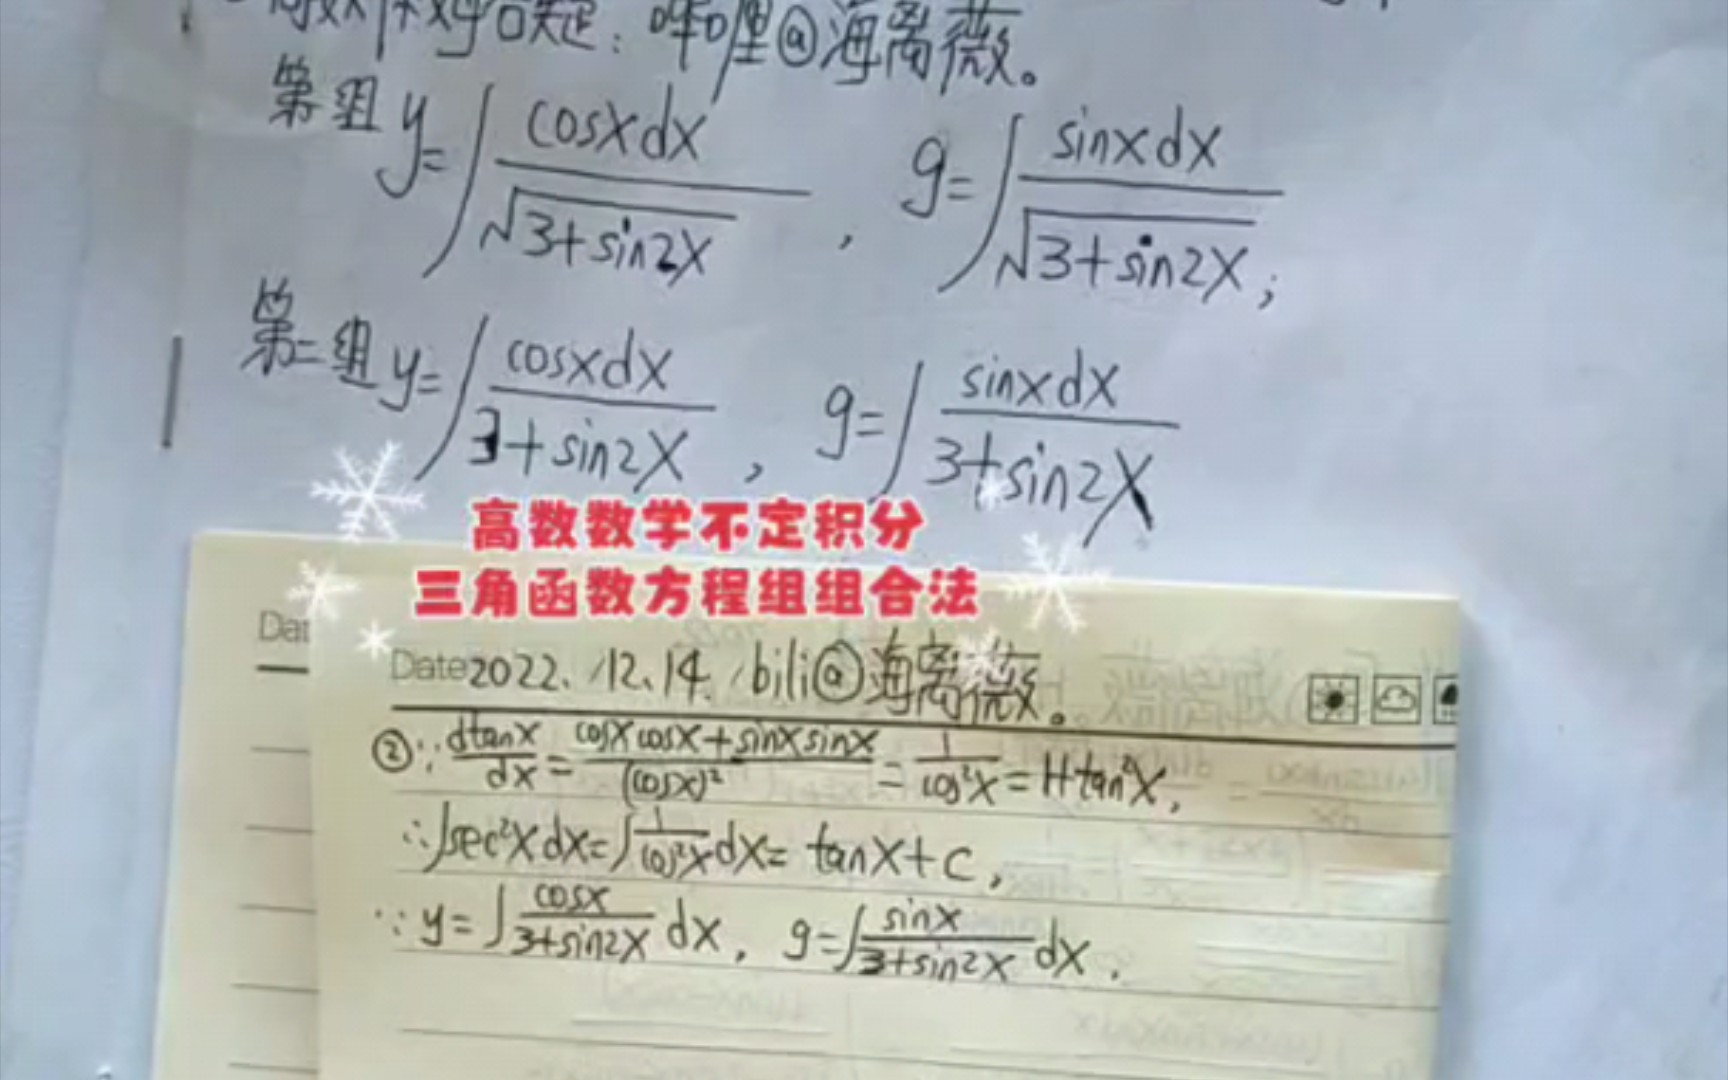 哔哩@海离薇。
第一组 y=∫cosxdx/√3+sin2x , g=∫sinxdx/√3+sin2x;
第二组 y=∫cosxdx/3+sin2x , g=∫sinxdx/3+sin2x
高数数学不定积分
三角函数方程组组合法
Dat
Date 2022.12.14. bili@海离薇。
②∵dtanx/dx=cosxcosx+sinxsinx/(cosx)²=1/cos²x=1+tan²x,
∴∫sec²xdx=∫1/cos²xdx=tanx+c,
∵y=∫cosx/3+sin2x dx, g=∫sinx/3+sin2x dx.